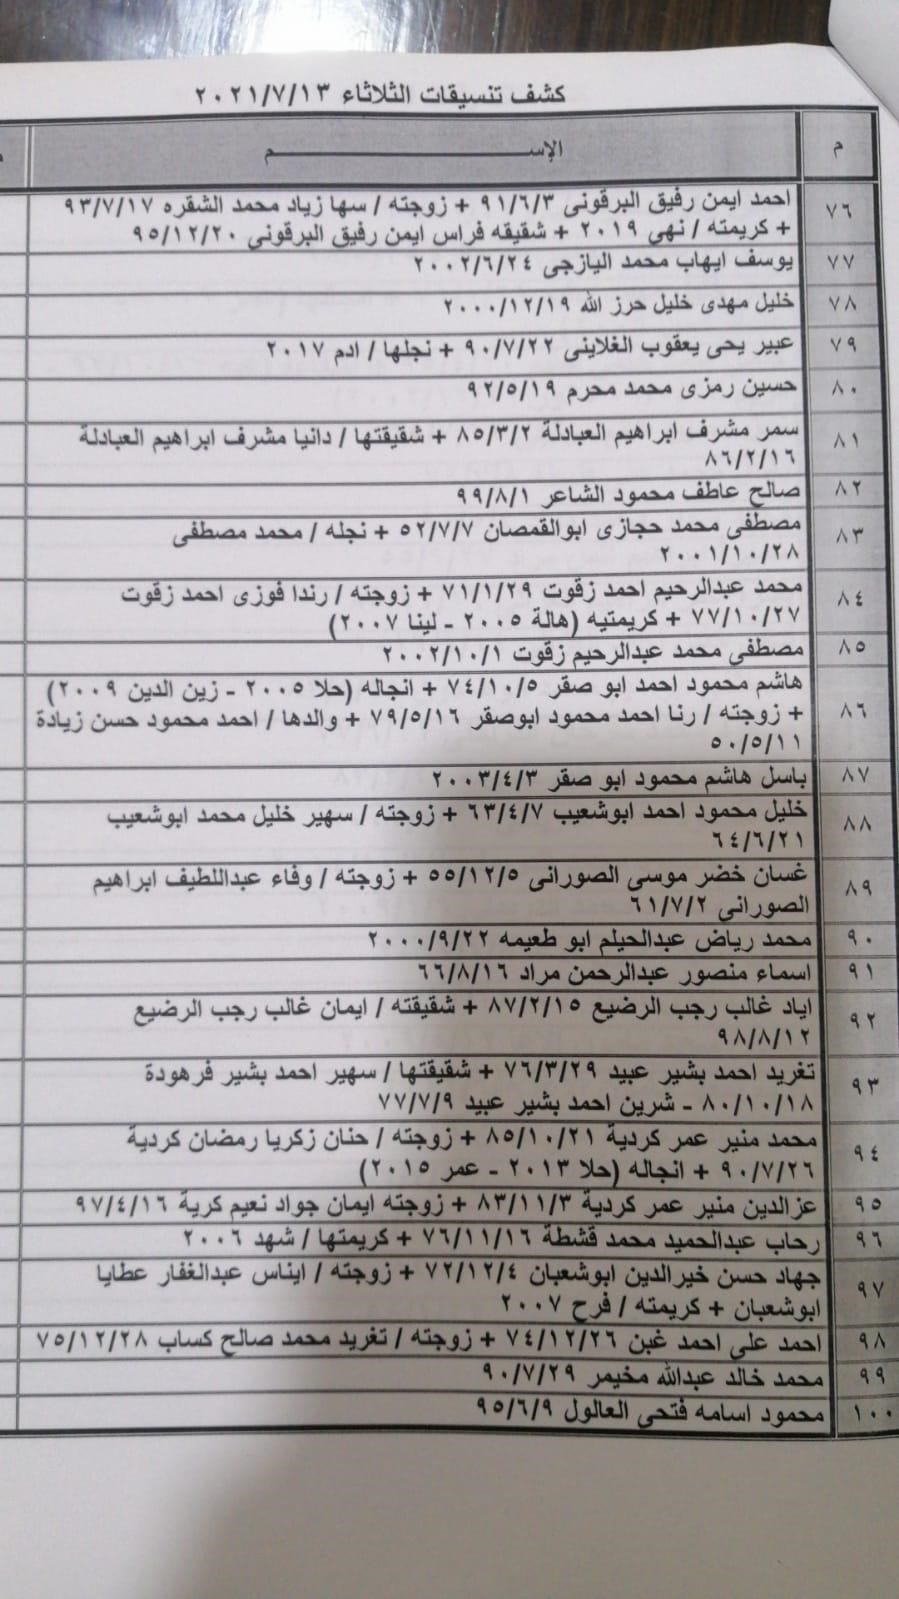 كشف تنسيقات الثلاثاء ٢٠٢١/٧/١٣
م الإســـــــــــــــــــــــــم
٧٦ احمد ايمن رفيق البرقونى ٩١/٦/٣ + زوجته / سها زياد محمد الشقره ٩٣/٧/١٧
+ كريمته / نهى ٢٠١٩ + شقيقه فراس ايمن رفيق البرقونى ٩٥/١٢/٢٠
٧٧ يوسف ايهاب محمد اليازجى ٢٠٠٢/٦/٢٤
٧٨ خليل مهدى خليل حرز الله ٢٠٠٠/١٢/١٩
٧٩ عبير يحى يعقوب الغلاينى ٩٠/٧/٢٢ + نجلها / ادم ٢٠١٧
٨٠ حسين رمزى محمد محرم ٩٢/٥/١٩
٨١ سمر مشرف ابراهيم العبادلة ٨٥/٣/٢ + شقيقتها / دانيا مشرف ابراهيم العبادلة
٨٦/٢/١٦
٨٢ صالح عاطف محمود الشاعر ٩٩/٨/١
٨٣ مصطفى محمد حجازى ابوالقمصان ٥٢/٧/٧ + نجله / محمد مصطفى
٢٠٠١/١٠/٢٨
٨٤ محمد عبدالرحيم احمد زقوت ٧١/١/٢٩ + زوجته / رندا فوزى احمد زقوت
٧٧/١٠/٢٧ + كريمتيه (هالة ٢٠٠٥ - لينا ٢٠٠٧)
٨٥ مصطفى محمد عبدالرحيم زقوت ٢٠٠٢/١٠/١
٨٦ هاشم محمود احمد ابو صقر ٧٤/١٠/٥ + انجاله (حلا ٢٠٠٥ - زين الدين ٢٠٠٩)
+ زوجته / رنا احمد محمود ابوصقر ٧٩/٥/١٦ + والدها / احمد محمود حسن زيادة
٥٠/٥/١١
٨٧ باسل هاشم محمود ابو صقر ٢٠٠٣/٤/٣
٨٨ خليل محمود احمد ابوشعيب ٦٣/٤/٧ + زوجته / سهير خليل محمد ابوشعيب
٦٤/٦/٢١
٨٩ غسان خضر موسى الصورانى ٥٥/١٢/٥ + زوجته / وفاء عبداللطيف ابراهيم
الصورانى ٦١/٧/٢
٩٠ محمد رياض عبدالحيلم ابو طعيمه ٢٠٠٠/٩/٢٢
٩١ اسماء منصور عبدالرحمن مراد ٦٦/٨/١٦
٩٢ اياد غالب رجب الرضيع ٨٧/٢/١٥ + شقيقته / ايمان غالب رجب الرضيع
٩٨/٨/١٢
٩٣ تغريد احمد بشير عبيد ٧٦/٣/٢٩ + شقيقتها / سهير احمد بشير فرهودة
٨٠/١٠/١٨ - شرين احمد بشير عبيد ٧٧/٧/٩
٩٤ محمد منير عمر كردية ٨٥/١٠/٢١ + زوجته / حنان زكريا رمضان كردية
٩٠/٧/٢٦ + انجاله (حلا ٢٠١٣ - عمر ٢٠١٥)
٩٥ عزالدين منير عمر كردية ٨٣/١١/٣ + زوجته ايمان جواد نعيم كرية ٩٧/٤/١٦
٩٦ رحاب عبدالحميد محمد قشطة ٧٦/١١/١٦ + كريمتها / شهد ٢٠٠٦
٩٧ جهاد حسن خيرالدين ابوشعبان ٧٢/١٢/٤ + زوجته / ايناس عبدالغفار عطايا
ابوشعبان + كريمته / فرح ٢٠٠٧
٩٨ احمد على احمد غبن ٧٤/١٢/٢٦ + زوجته / تغريد محمد صالح كساب ٧٥/١٢/٢٨
٩٩ محمد خالد عبدالله مخيمر ٩٠/٧/٢٩
١٠٠ محمود اسامه فتحى العالول ٩٥/٦/٩